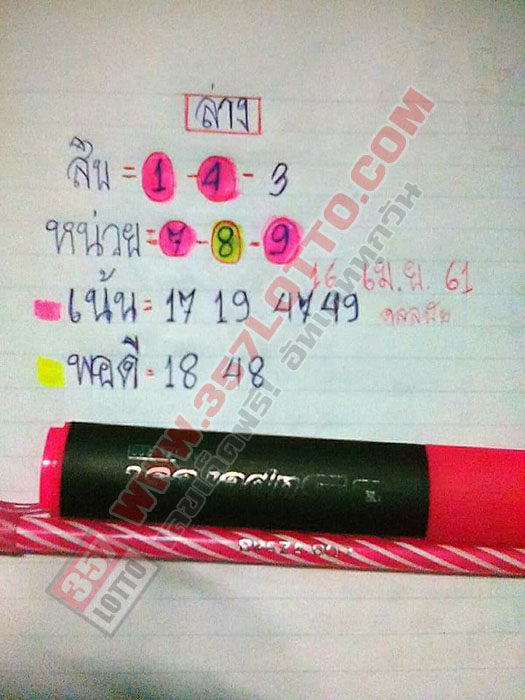 ล่าง
สิบ = 1 - 4 - 3
หน่วย = 7 - 8 - 9
16 เม.ย. 61
เน้น = 17 19 47 49
พอดี = 18 48
WWW.357LOTTO.COM
357 LOTTO